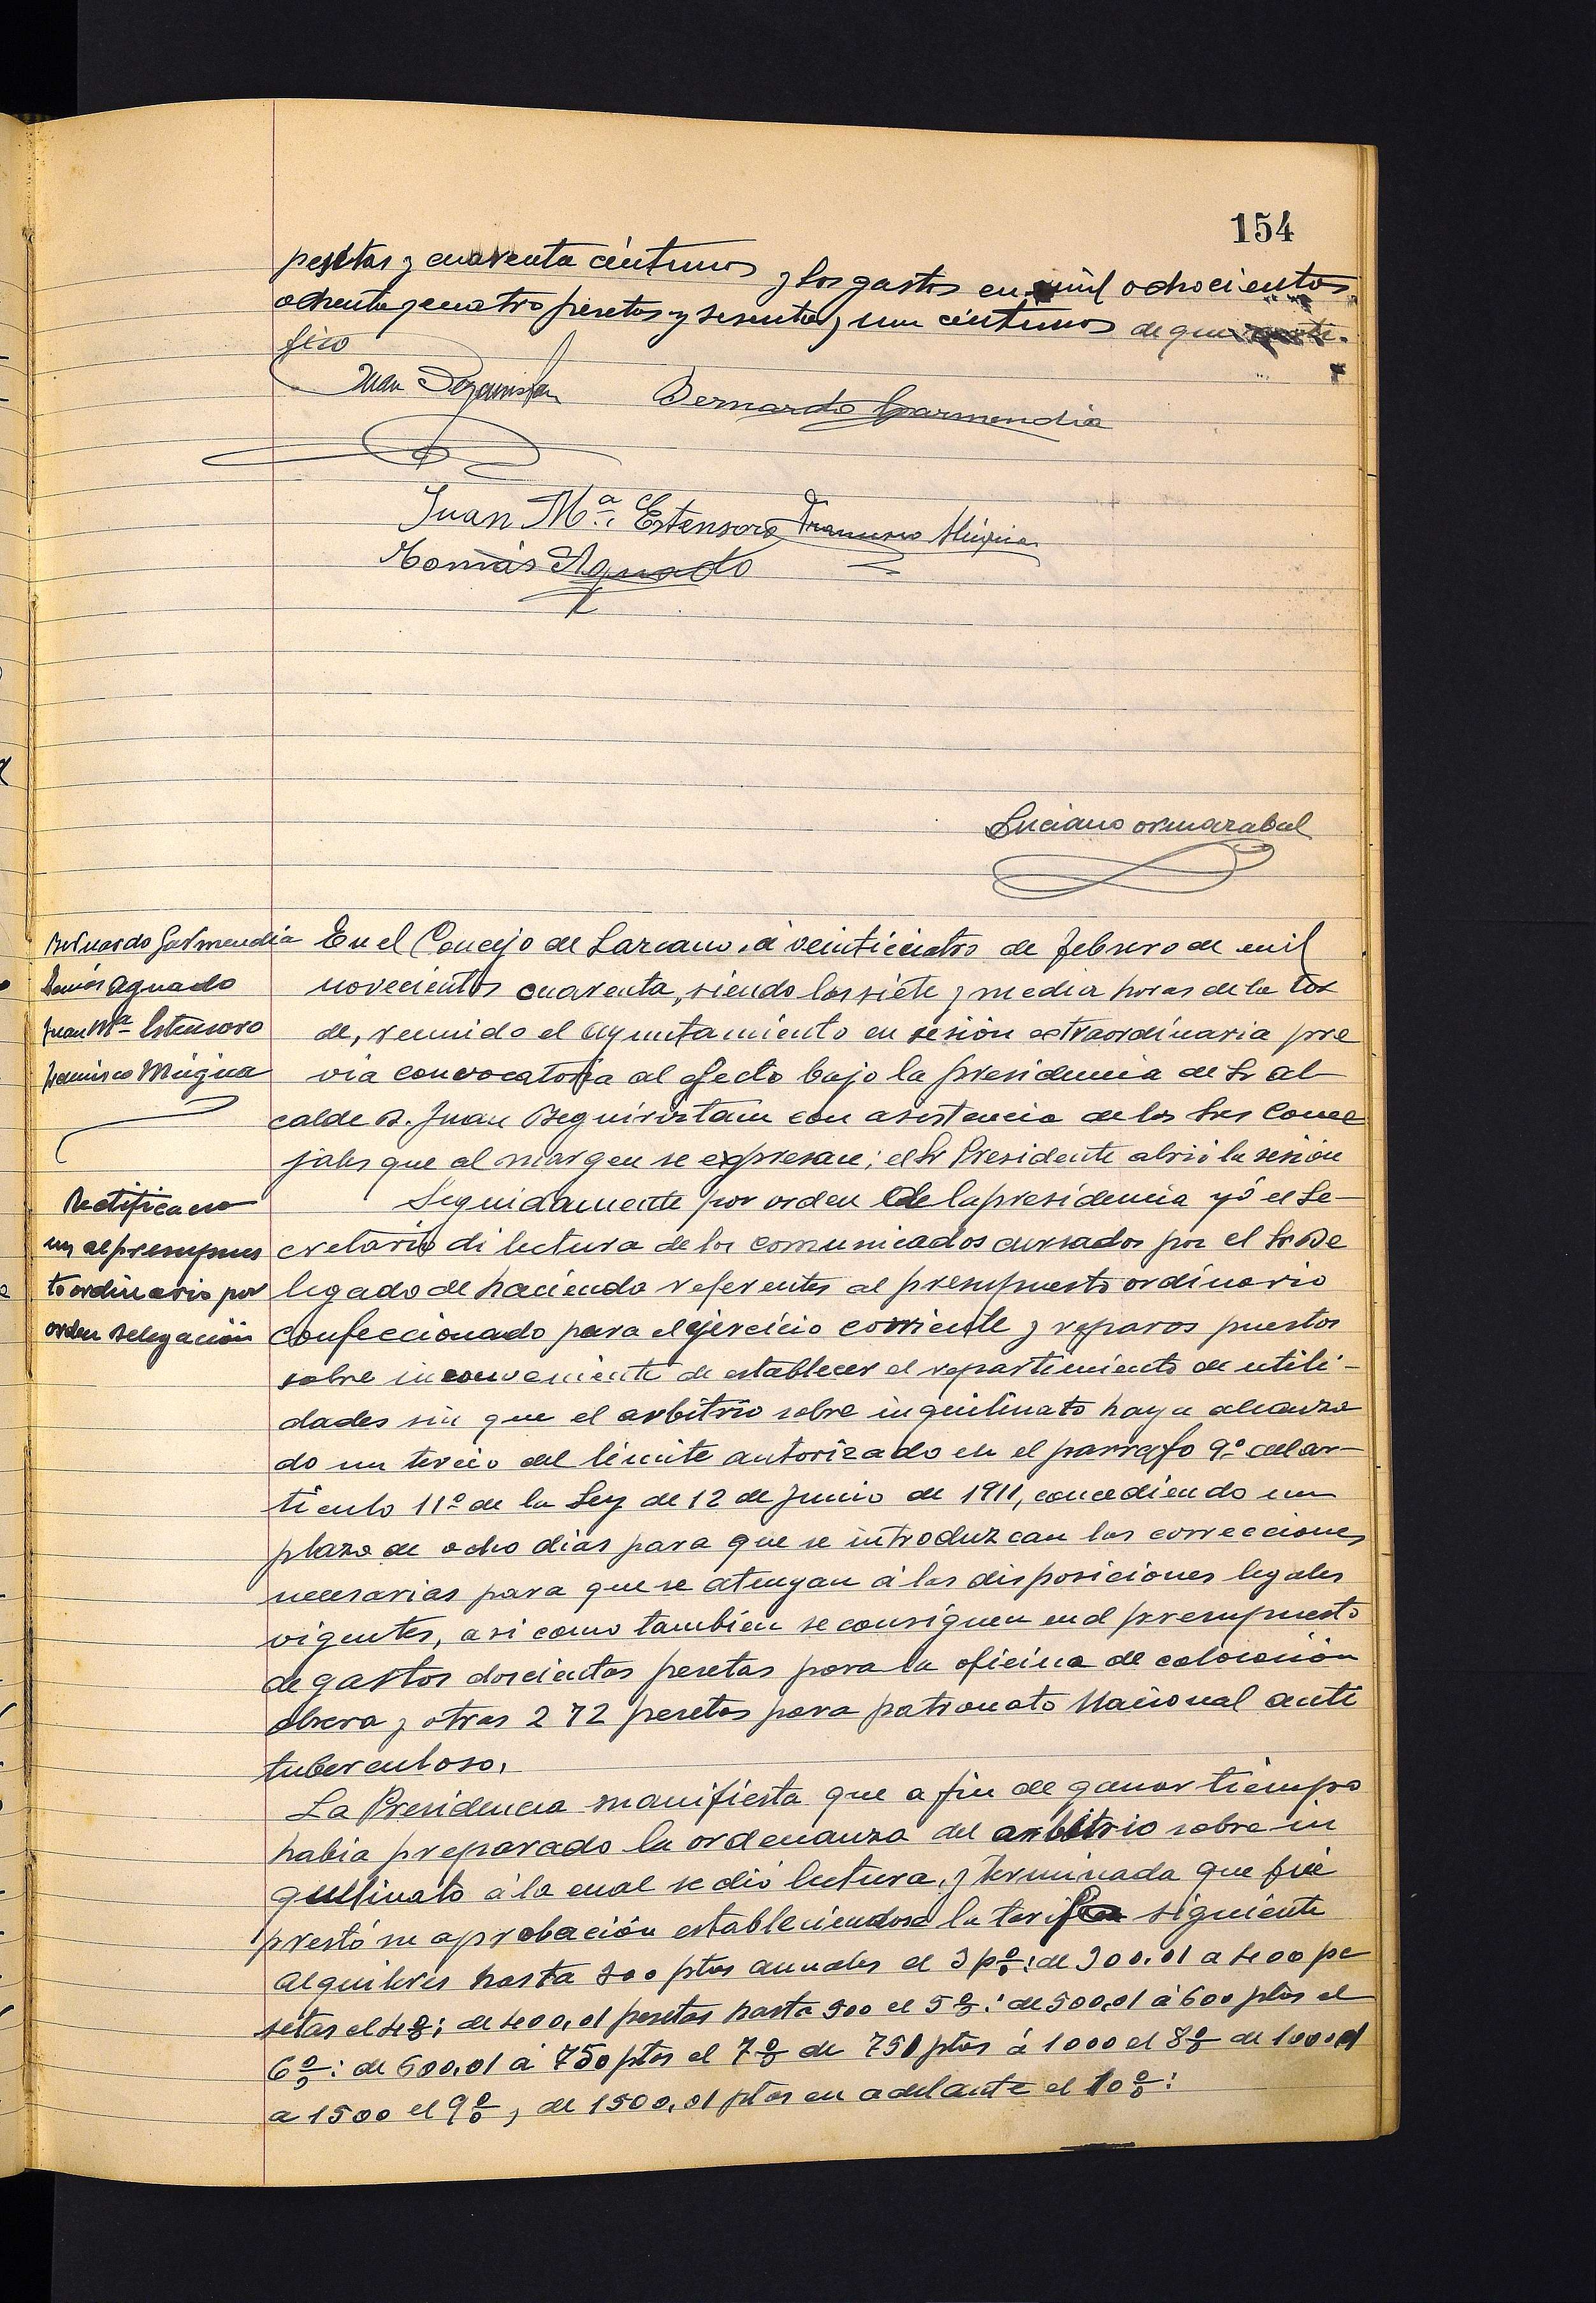 154
pesetas y cuarenta céntimos y los gastos en mil ochocientos
ochenta y cuatro pesetas y sesenta y un céntimos de que
fico
Juan
Bernardo Garmendia
Juan Mª Estensoro Francisco Múgica
Tomás Aguado
Luciano ormazabal
Bernardo Garmendia
Tomás Aguado
Juan Mª Estensoro
Francisco Múgica
En el Concejo de Lazcano, á veinticuatro de febrero de mil
novecientos cuarenta, siendo las siete y media horas de la tar
de, reunido el Ayuntamiento en sesión extraordinaria pre
via convocatoria al efecto bajo la presidencia de Sr al
calde D. Juan Beguiristain con asistencia de los Sres Conce
jales que al margen se expresan; el Sr Presidente abrió la sesión
Rectificacio
un al presupues
to ordinario por
orden Delegación
Seguidamente por orden de la presidencia yó el Se-
cretario di lectura de los comunicados cursados por el Sr De
legado de hacienda referentes al presupuesto ordinario
confeccionado para el ejercicio corriente y reparos puestos
sobre inconveniente de establecer el repartimiento de utili-
dades sin que el arbitrio sobre inquilinato haya alcanza
do un tercio del limite autorizado en el parrafo 9º del ar-
ticulo 11º de la Ley de 12 de Junio de 1911, concediendo un
plazo de ocho dias para que se introduzcan las correcciones
necesarias para que se atengan á las disposiciones legales
vigentes, asi como tambien se consignen en el presupuesto
de gastos doscientas pesetas para la oficina de colocación
obrera y otras 272 pesetas para patronato Nacional anti
tuberculoso.
La Presidencia manifiesta que a fin de ganar tiempo
habia preparado la ordenanza del arbitrio sobre in
quilinato á la cual se dió lectura, y terminada que fué
prestó su aprobación estableciendose la tarifa siguiente
Alquileres hasta 300 ptas anuales el 3 p%: de 300,01 a 400 pe
setas el 4%; de 400,01 pesetas hasta 500 el 5%: de 500,01 á 600 ptas el
6%: de 600,01 á 750 ptas el 7% de 751 ptas á 1000 el 8% de 1000,01
a 1500 el 9%, de 1500,01 ptas en adelante el 10%: